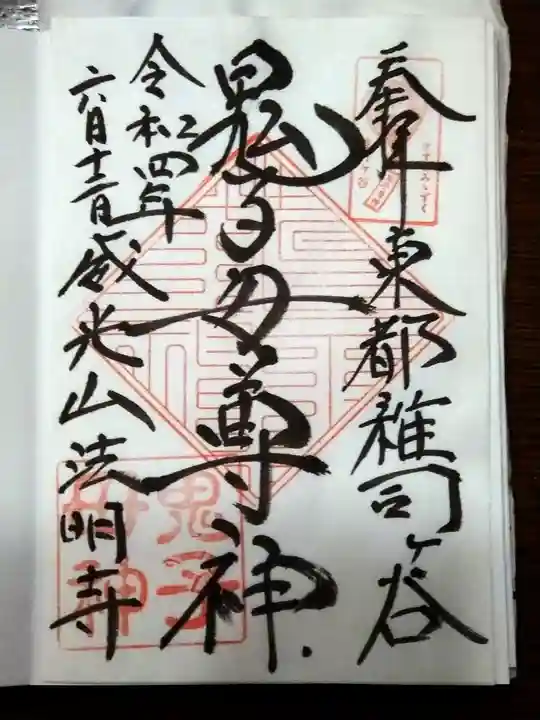 奉拝
東都雑司ヶ谷
鬼子母尊神
令和四年
六月十二日
威光山法明寺
すすきみみずく
鬼子
母神